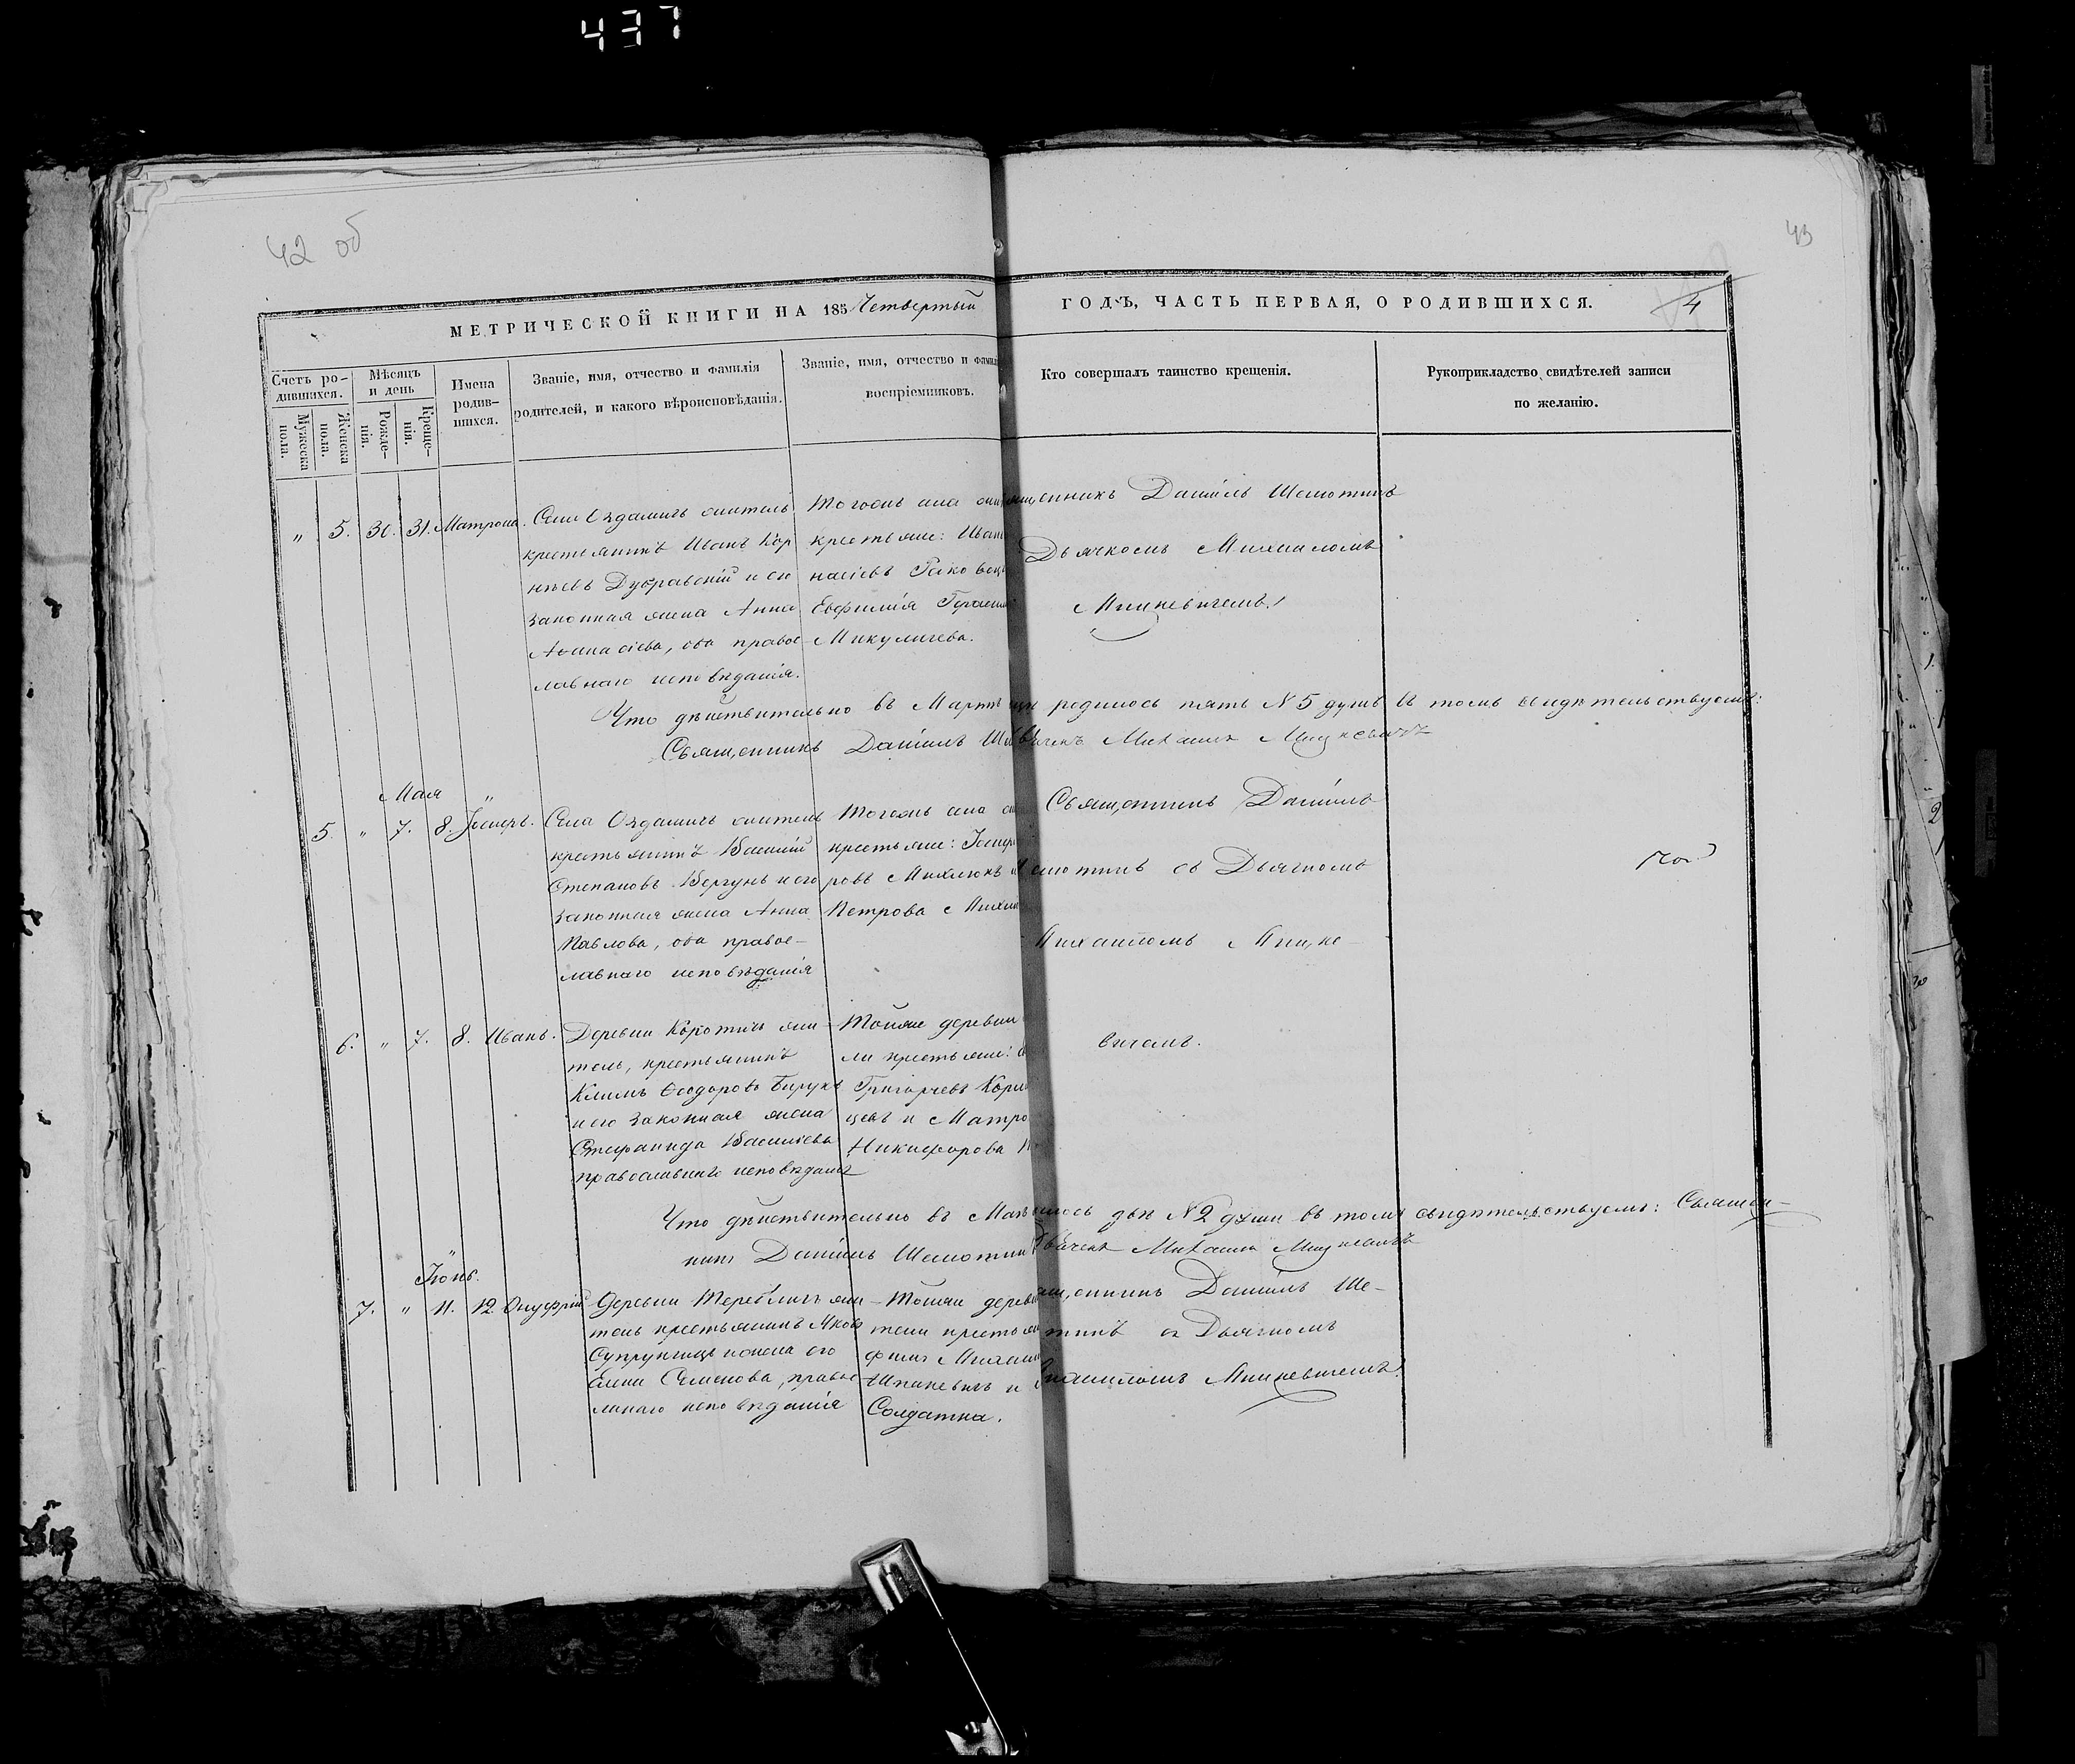 437
42 об
43
МЕТРИЧЕСКОЙ КНИГИ НА 185 Четвертый
ГОДЪ, ЧАСТЬ ПЕРВАЯ, О РОДИВШИХСЯ.
4
Счетъ ро-
дившихся.
Мужеска
пола.
Женска
пола.
Мѣсяцъ
и день
Рожде-
нія.
Креще-
нія.
Имена
родив-
шихся.
Званіе, имя, отчество и фамилія
родителей, и какого вѣроисповѣданія.
Званіе, имя, отчество и фамилі
воспріемниковъ.
Кто совершалъ таинство крещенія.
Рукоприкладство свидѣтелей записи
по желанію.
" 5. 30. 31. Матрона.
Села Оздамичъ житель
крестьянинъ Иванъ Кор
нѣевъ Дубравскій и его
законная жена Анна
Аѳанасіева, оба правос-
лавнаго исповѣданія.
Тогожъ села жи
крестьяне: Иванъ
насіевъ Раковец
Евфимія Гераси
Микуличева.
щенникъ Даніилъ Шелютинъ
Дьячкомъ Михаиломъ
Мицкевичемъ.
Что дѣйствительно въ Мартѣ родилось пять № 5 душъ въ томъ свидѣтельствуемъ:
Священникъ Даніилъ Ше Михаилъ Мицкевичъ
Мая "
5. " 7. 8. Іосифъ.
Села Оздамичъ житель
крестьянинъ Василій
Степановъ Вергунъ и его
законная жена Анна
Павлова, оба правос-
лавнаго исповѣданія
Тогожъ села жи
крестьяне: Іосиф
ровъ Михлюкъ и
Петрова Михл
Священникъ Даніилъ
лютинъ съ Дьячкомъ
Михаиломъ Мицке-
вичемъ.
6. " 7. 8. Иванъ.
Деревни Коротичъ жи-
тель, крестьянинъ
Климъ Ѳеодоровъ Бирукъ
и его законная жена
Стефанида Василіева
православнаго исповѣданія
Тойже деревни
ли крестьяне:
Григорьевъ Кор
цевъ и Матро
Никифорова
Что дѣйствительно въ Маѣ лось двѣ № 2 души въ томъ свидѣтельствуемъ: Священ-
никъ Даніилъ Шелютин Михаилъ Мицкевичъ
"
Іюнь.
7. " 11. 12. Онуфрій
Деревни Теребличъ жи-
тель крестьянинъ Яковъ
Супрунчицъ и жена его
Елена Семенова, правос-
лавнаго исповѣданія
Тойже дерев
тели крестьян
фимъ Михаил
Шпаневичъ и
Солдатка.
щенникъ Даніилъ Ше-
тинъ съ Дьячкомъ
Михаиломъ Мицкевичемъ.